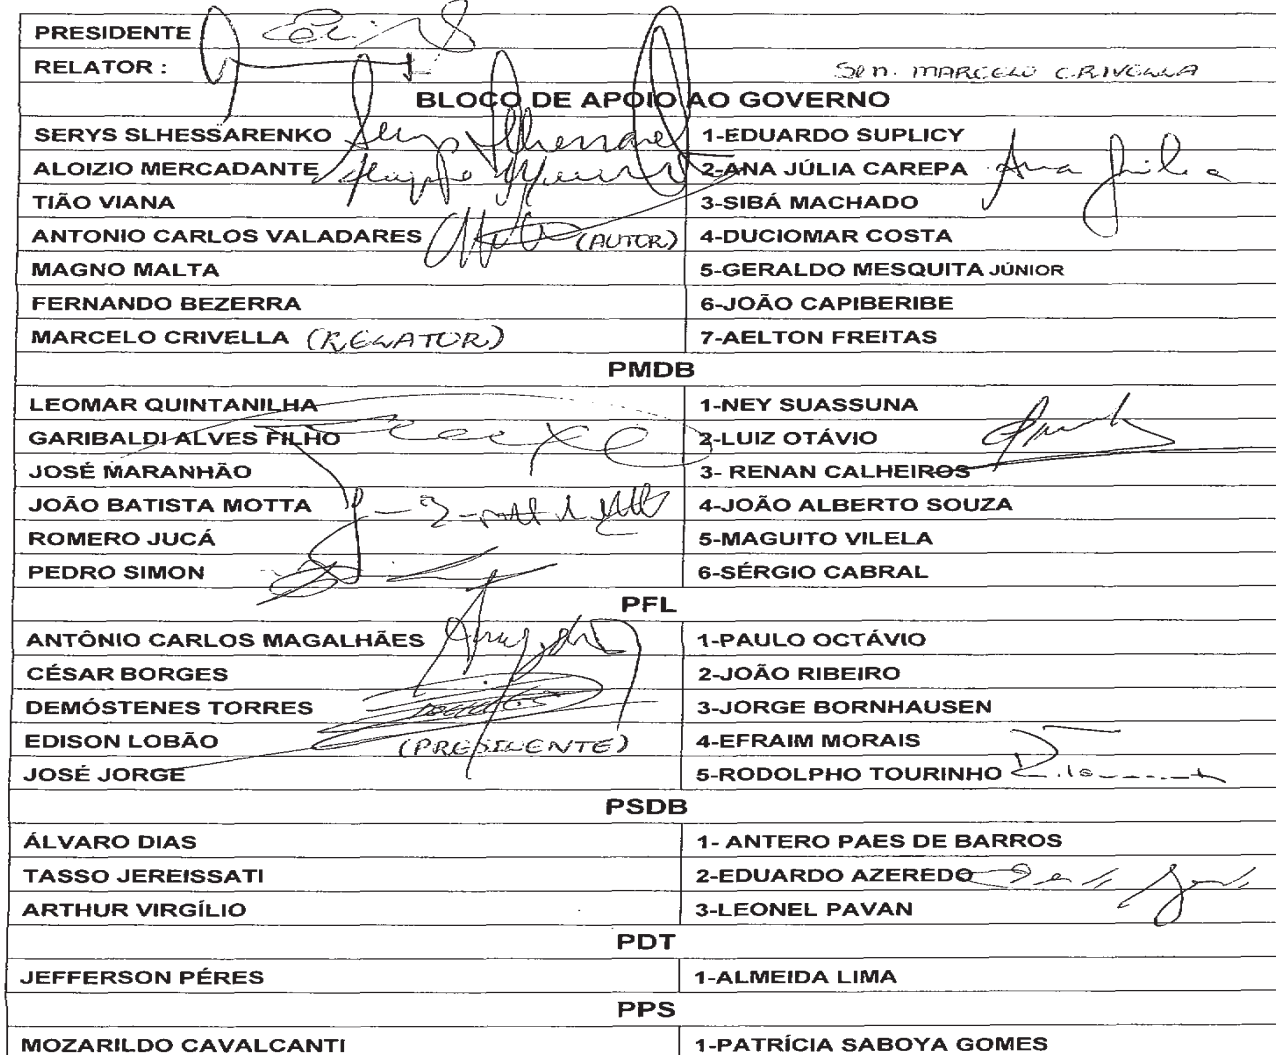 PRESIDENTE
RELATOR : Sen. MARCELO CRIVELLA
BLOCO DE APOIO AO GOVERNO
SERYS SLHESSARENKO 1-EDUARDO SUPLICY
ALOIZIO MERCADANTE 2-ANA JÚLIA CAREPA Ana Júlia
TIÃO VIANA 3-SIBÁ MACHADO
ANTONIO CARLOS VALADARES (AUTOR) 4-DUCIOMAR COSTA
MAGNO MALTA 5-GERALDO MESQUITA JÚNIOR
FERNANDO BEZERRA 6-JOÃO CAPIBERIBE
MARCELO CRIVELLA (RELATOR) 7-AELTON FREITAS
PMDB
LEOMAR QUINTANILHA 1-NEY SUASSUNA
GARIBALDI ALVES FILHO 2-LUIZ OTÁVIO
JOSÉ MARANHÃO 3- RENAN CALHEIROS
JOÃO BATISTA MOTTA 4-JOÃO ALBERTO SOUZA
ROMERO JUCÁ 5-MAGUITO VILELA
PEDRO SIMON 6-SÉRGIO CABRAL
PFL
ANTÔNIO CARLOS MAGALHÃES 1-PAULO OCTÁVIO
CÉSAR BORGES 2-JOÃO RIBEIRO
DEMÓSTENES TORRES 3-JORGE BORNHAUSEN
EDISON LOBÃO (PRESIDENTE) 4-EFRAIM MORAIS
JOSÉ JORGE 5-RODOLPHO TOURINHO
PSDB
ÁLVARO DIAS 1- ANTERO PAES DE BARROS
TASSO JEREISSATI 2-EDUARDO AZEREDO
ARTHUR VIRGÍLIO 3-LEONEL PAVAN
PDT
JEFFERSON PÉRES 1-ALMEIDA LIMA
PPS
MOZARILDO CAVALCANTI 1-PATRÍCIA SABOYA GOMES